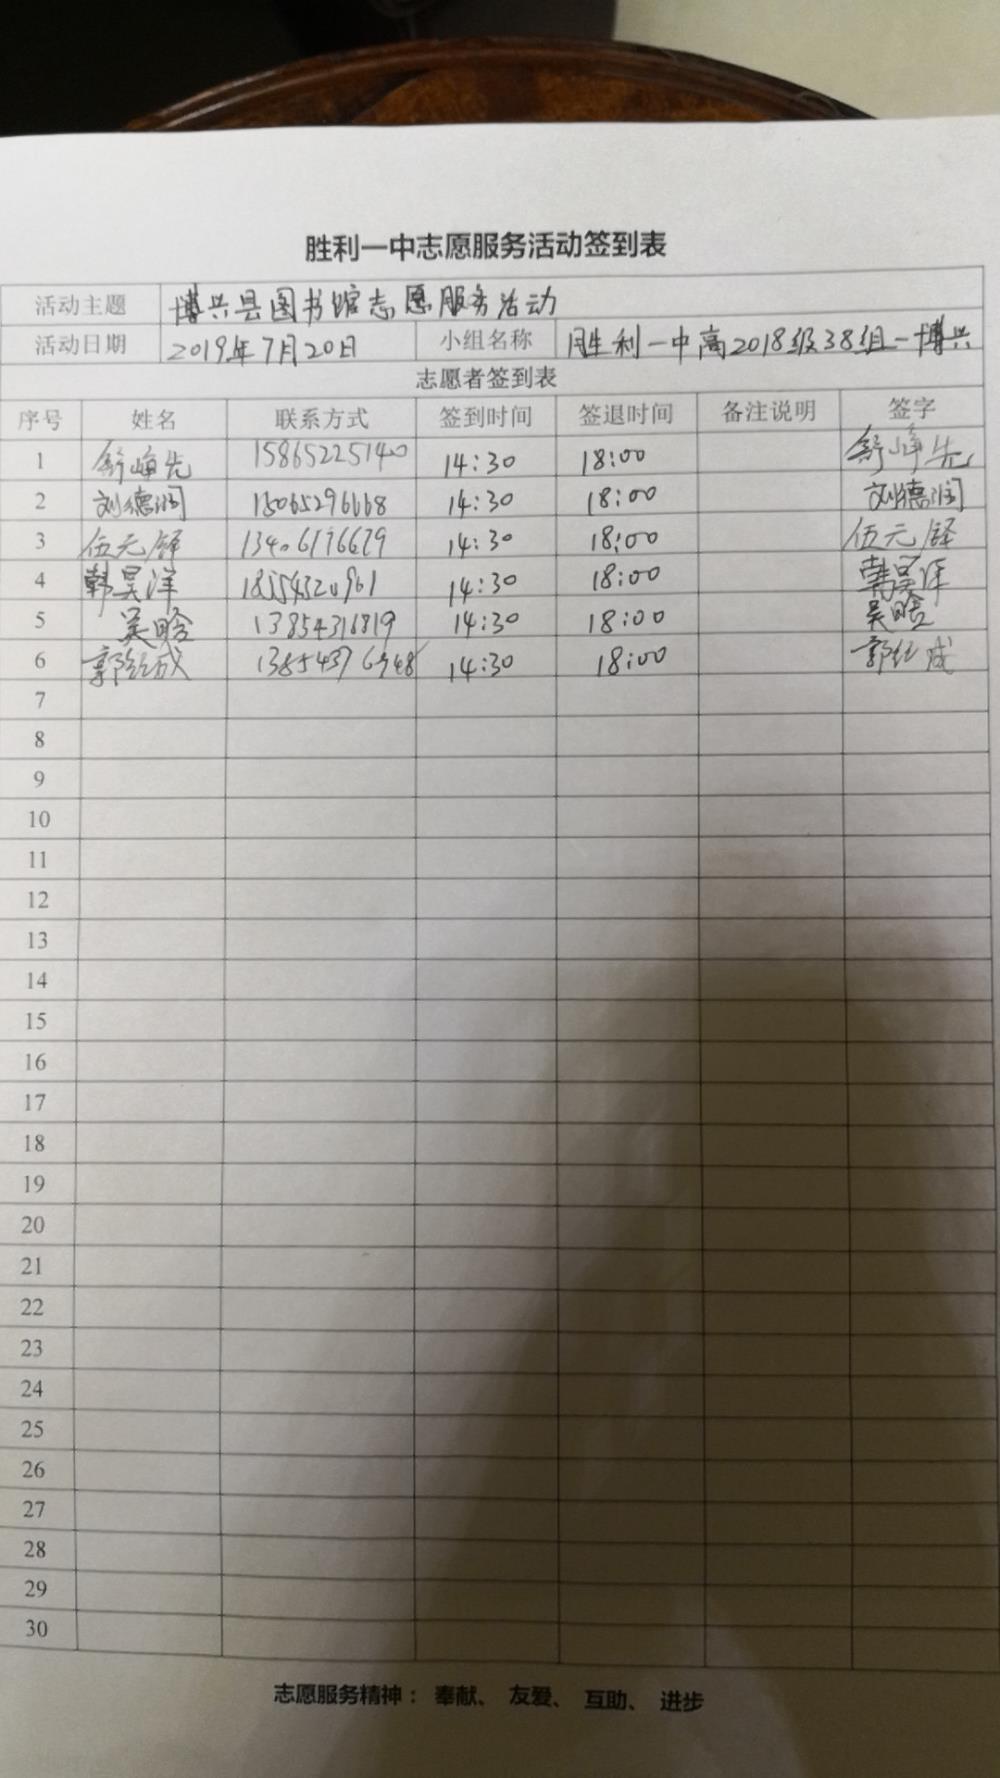 胜利一中志愿服务活动签到表
活动主题 博兴县图书馆志愿服务活动
活动日期 2019年7月20日 小组名称 胜利一中高2018级38组-博兴
志愿者签到表
序号 姓名 联系方式 签到时间 签退时间 备注说明 签字
1 舒峥先 15865225140 14:30 18:00 舒峥先
2 刘德润 14:30 18:00 刘德润
3 伍元铎 14:30 18:00 伍元铎
4 韩昊洋 18554320961 14:30 18:00 韩昊洋
5 吴晗 13854316819 14:30 18:00 吴晗
6 14:30 18:00
7
8
9
10
11
12
13
14
15
16
17
18
19
20
21
22
23
24
25
26
27
28
29
30
志愿服务精神： 奉献、 友爱、 互助、 进步